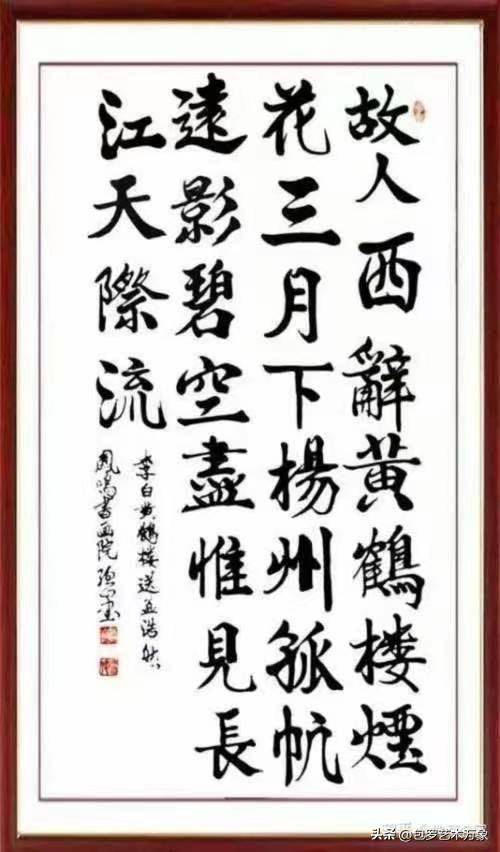 故人西辭黄鶴楼煙
花三月下楊州孤帆
遠影碧空盡惟見長
江天際流
李白黄鶴楼送孟浩然
鳳鸣書画院
头条 @包罗艺术万象